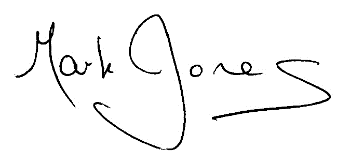 Mark Jones